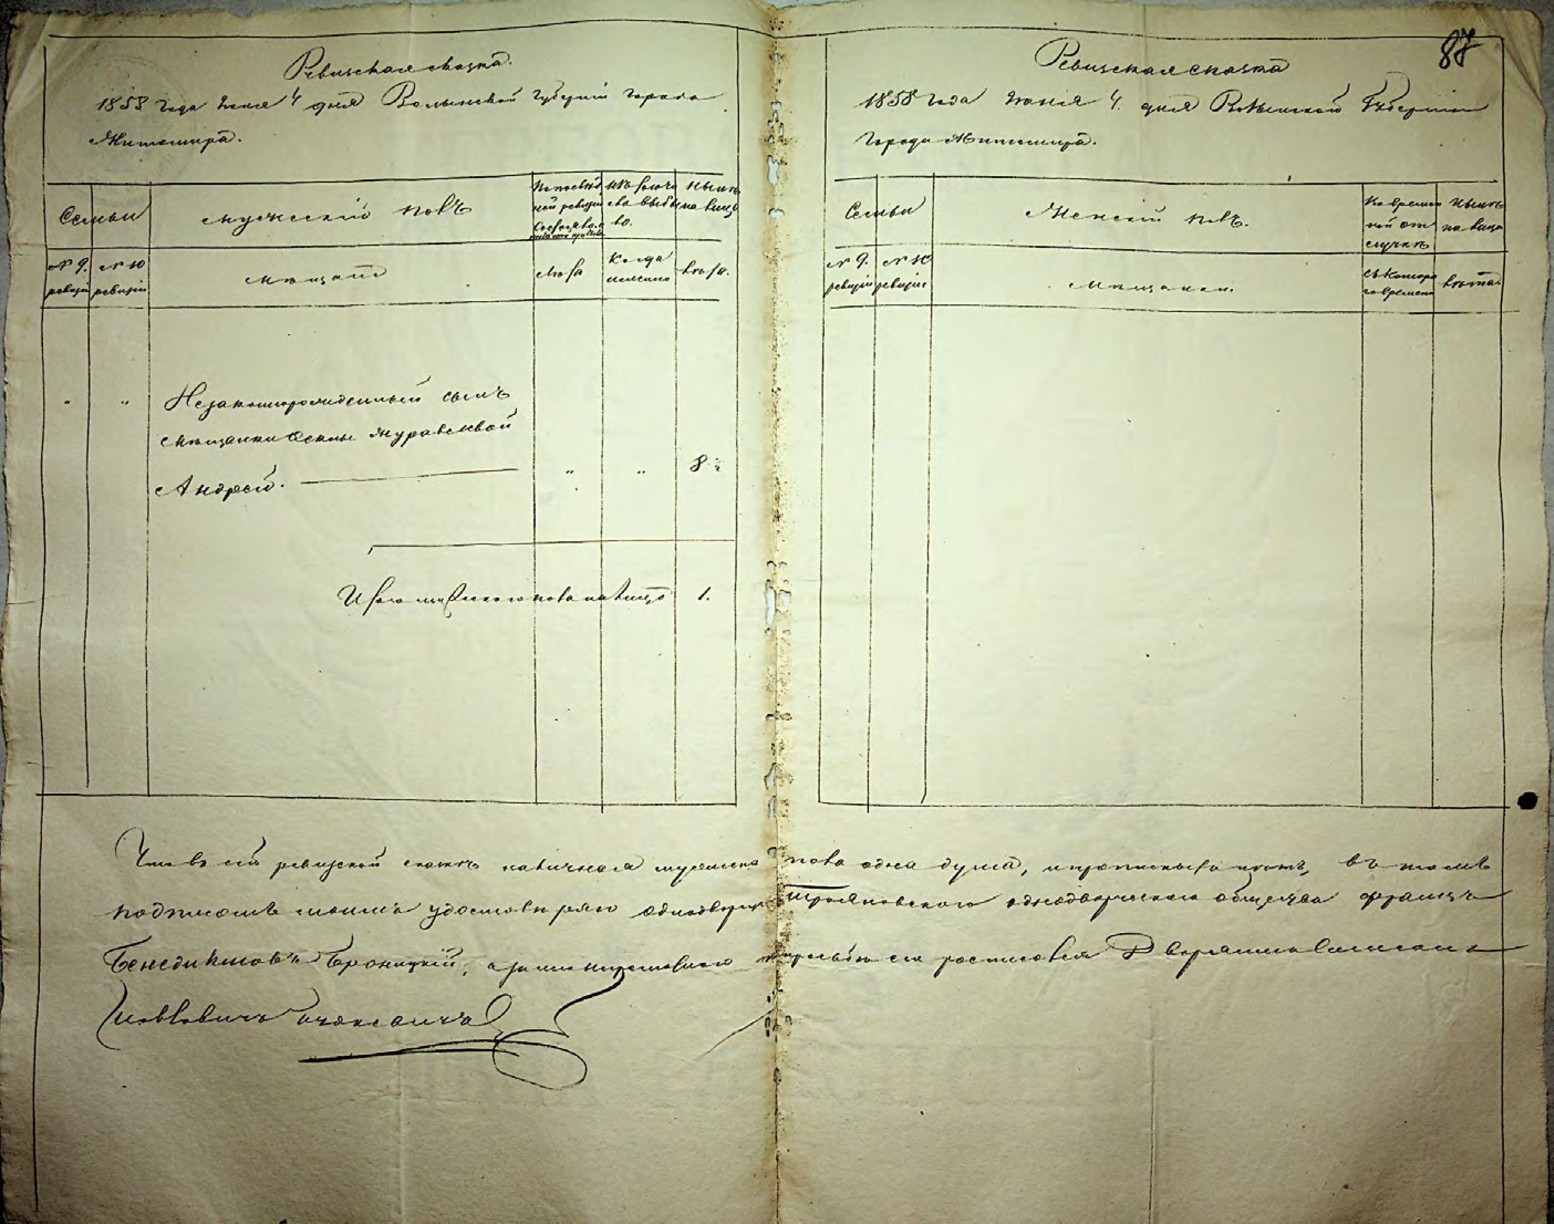 87
Ревизская сказка.
1858 года Июня 4 дня Волынской Губернии города
Житомира.
Семьи
Мужескій полъ
По последней ревизіи состояло
Изъ того числа выбыло.
Ныне на лицо
№ 9. ревизіи
№ 10 ревизіи
Мещане
Лета
Когда именно
Лета.
Незаконнорожденный сынъ
мещанки Журавлевой
Андрей.
8 ½
Итого мужескаго пола на лицо 1.
Ревизская сказка
1858 года Июня 4. дня Волынской Губернии
Города Житомира.
Семьи
Женскій полъ.
Во временной отлучке
Ныне на лицо
№ 9. ревизіи
№ 10 ревизіи
Мещанки.
Съ котораго времени
Лета.
Что въ сей ревизской сказке наличная мужеска пола одна душа, и прописных нетъ, въ томъ
подписомъ моимъ удостоверяю однодворецъ Трояновского однодворческаго общества Францъ
Бенедиктовъ Броницкій, а за неграмотного по прозьбе его росписовся Дворянин